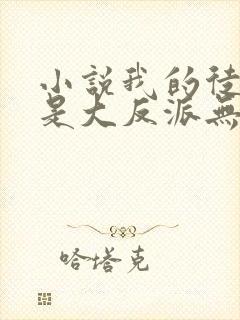 小說我的徒
是大反派無
哈塔克